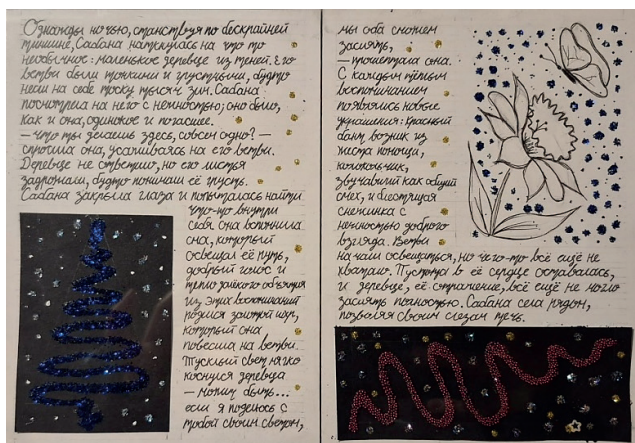 Однажды ночью, странствуя по бескрайней
тишине, Сабана наткнулась на что то
необычное: маленькое деревце из теней. Его
ветви были тонкими и грустными, будто
несли на себе тоску тысяч зим. Сабана
посмотрела на него с нежностью; оно было,
как и она, одинокое и погасшее.
— что ты делаешь здесь, совсем одно? —
спросила она, усаживаясь на его ветви.
Деревце не ответило, но его листья
задрожали, будто понимая её грусть.
Сабана закрыла глаза и попыталась найти
что-то внутри
себя. она вспомнила
сна, который
освещал её путь,
добрый голос и
тепло объятия
из этих воспоминаний
родился золотой шар,
который она
повесила на ветви.
Тусклый свет мягко
коснулся деревца
— может быть...
если я поделюсь с
тобой своим светом,
мы оба сможем
засиять,
— прошептала она.
С каждым тёплым
воспоминанием
появлялись новые
украшения: красный
бант возник из
жеста помощи,
колокольчик,
звучавший как общий
смех, и блестящая
снежинка с
нежностью доброго
взгляда. Ветви
начали освещаться, но чего-то всё ещё не
хватало. Пустота в её сердце оставалась,
и деревце, её отражение, всё ещё не могло
засиять полностью. Сабана села рядом,
позволяя своим слезам течь.